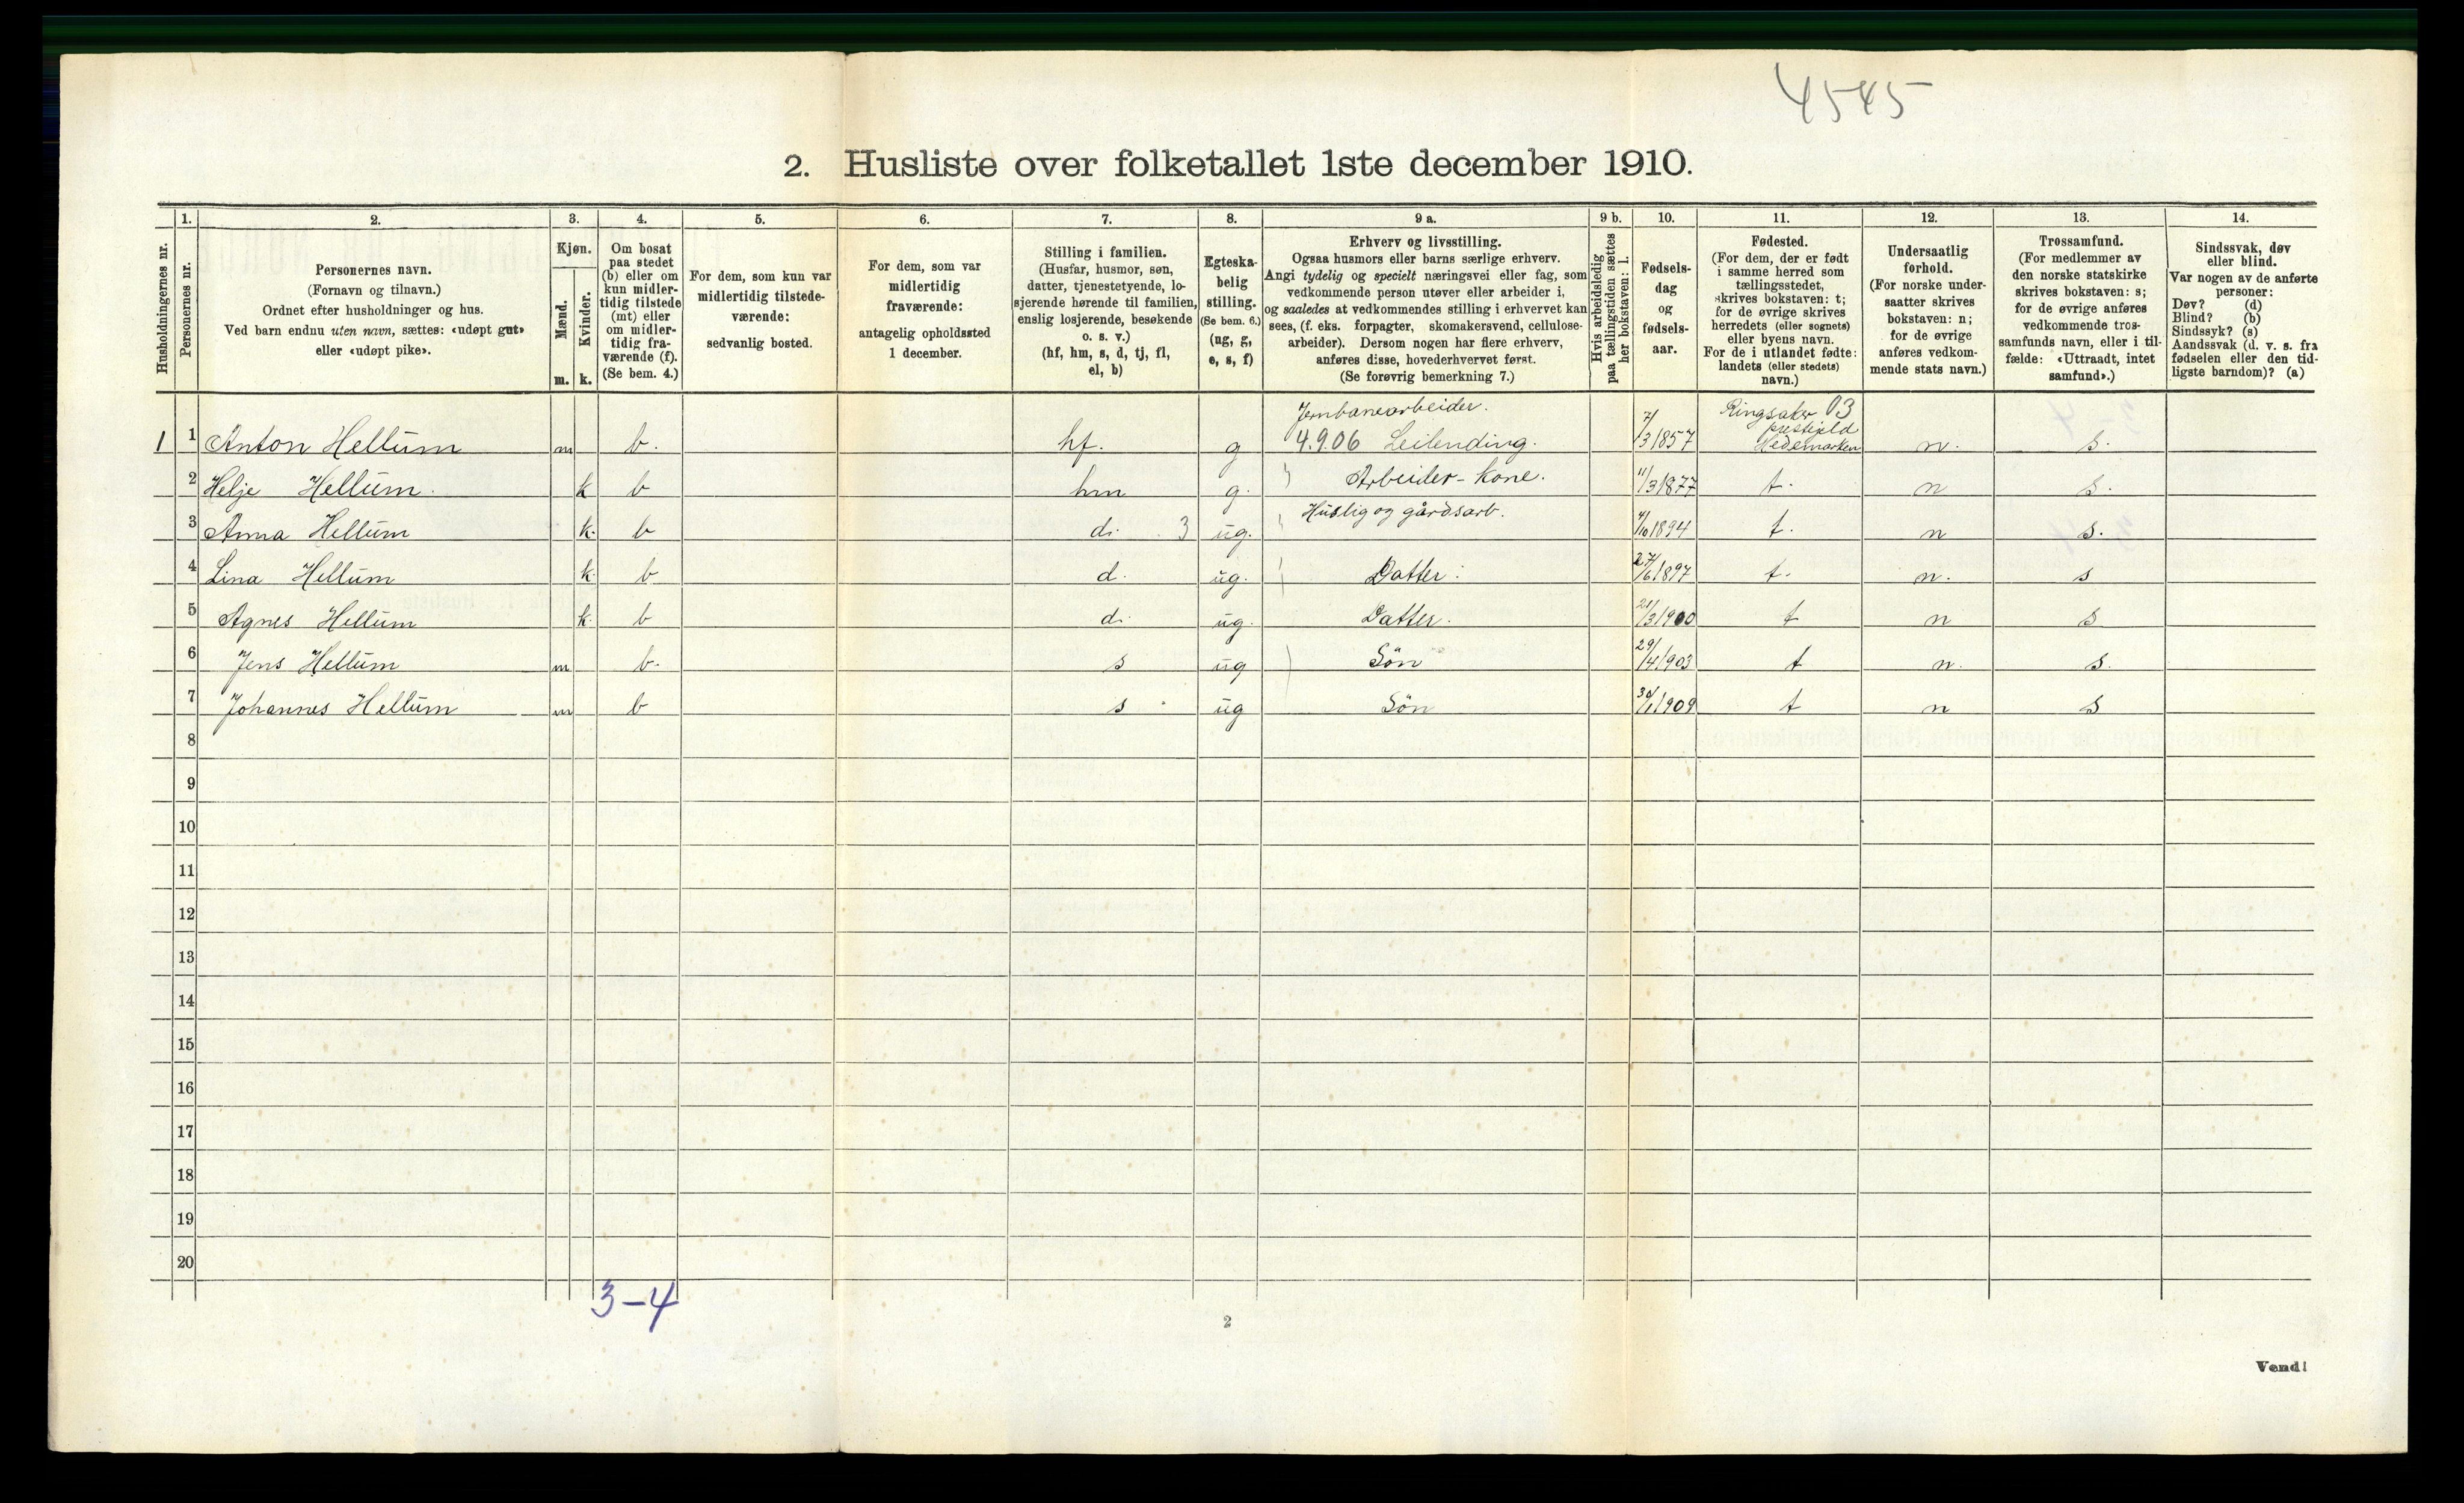 4545
2. Husliste over folketallet 1ste december 1910.
Husholdningernes nr.
1.
Personernes nr.
2.
Personernes navn.
(Fornavn og tilnavn.)
Ordnet efter husholdninger og hus.
Ved barn endnu uten navn, sættes: «udøpt gut»
eller «udøpt pike».
3.
Kjøn.
Mænd.
Kvinder.
m. k.
4.
Om bosat
paa stedet
(b) eller om
kun midler-
tidig tilstede
(mt) eller
om midler-
tidig fra-
værende (f).
(Se bem. 4.)
5.
For dem, som kun var
midlertidig tilstede-
værende:
sedvanlig bosted.
6.
For dem, som var
midlertidig
fraværende:
antagelig opholdssted
1 december.
7.
Stilling i familien.
(Husfar, husmor, søn,
datter, tjenestetyende, lo-
sjerende hørende til familien,
enslig losjerende, besøkende
o. s. v.)
(hf, hm, s, d, tj, fl,
el, b)
8.
Egteska-
belig
stilling.
(Se bem. 6.)
(ug, g,
e, s, f)
9 a.
Erhverv og livsstilling.
Ogsaa husmors eller barns særlige erhverv.
Angi tydelig og specielt næringsvei eller fag, som
vedkommende person utøver eller arbeider i,
og saaledes at vedkommendes stilling i erhvervet kan
sees, (f. eks. forpagter, skomakersvend, cellulose-
arbeider). Dersom nogen har flere erhverv,
anføres disse, hovederhvervet først.
(Se forøvrig bemerkning 7.)
9 b.
Hvis arbeidsledig
paa tællingstiden sættes
her bokstaven: l.
10.
Fødsels-
dag
og
fødsels-
aar.
11.
Fødested.
(For dem, der er født
i samme herred som
tællingsstedet,
skrives bokstaven: t;
for de øvrige skrives
herredets (eller sognets)
eller byens navn.
For de i utlandet fødte:
landets (eller stedets)
navn.)
12.
Undersaatlig
forhold.
(For norske under-
saatter skrives
bokstaven: n;
for de øvrige
anføres vedkom-
mende stats navn.)
13.
Trossamfund.
(For medlemmer av
den norske statskirke
skrives bokstaven: s;
for de øvrige anføres
vedkommende tros-
samfunds navn, eller i til-
fælde: «Uttraadt, intet
samfund».)
14.
Sindssvak, døv
eller blind.
Var nogen av de anførte
personer:
Døv? (d)
Blind? (b)
Sindssyk? (s)
Aandssvak (d. v. s. fra
fødselen eller den tid-
ligste barndom)? (a)
Jernbanearbeider. Ringsaker 03
prestejeld
1 1 Anton Hellum m b. hf. g 4.9.06 Leilending. 7/3 1857 Hedemarken n. s.
2 Helje Hellum. k b hm g. Arbeider-kone. 11/3 1877 t. n s.
3 Anna Hellum k. b d. 3 ug. Huslig og gårdsarb. 4/10 1894 t. n s.
4 Lina Hellum k. b d. ug. Datter. 27/6 1897 t. n. s
5 Agnes Hellum k. b d. ug. Datter. 21/3 1900 t n s
6 Jens Hellum m b. s ug Søn 29/4 1903 t n. s.
7 Johannes Hellum m b s ug Søn 30/1 1909 t n s
8
9
10
11
12
13
14
15
16
17
18
19
20
3-4
2
Vend!